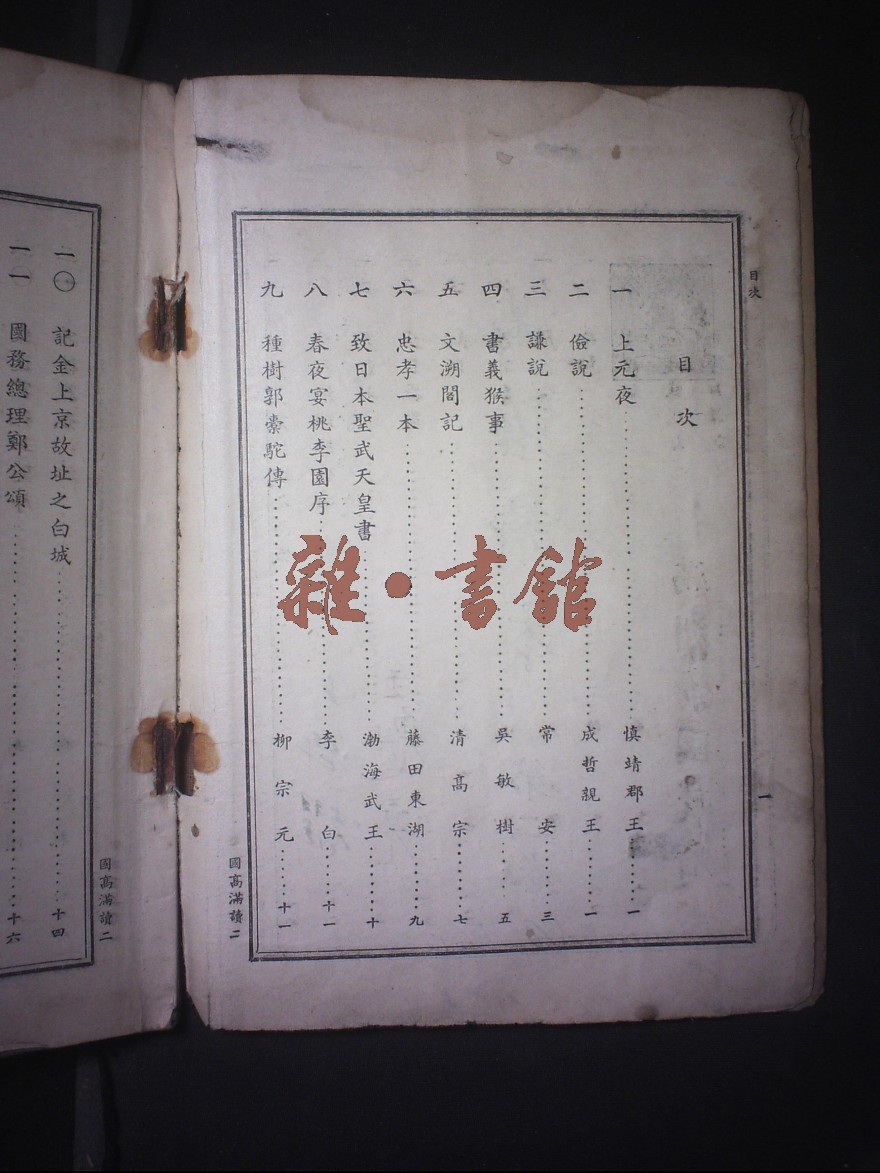 目次
目次
一 上元夜 慎靖郡王 一
二 儉說 成哲親王 一
三 謙說 常安 三
四 書義猴事 吳敏樹 五
五 文溯閣記 清高宗 七
六 忠孝一本 藤田東湖 九
七 致日本聖武天皇書 渤海武王 十
八 春夜宴桃李園序 李白 十一
九 種樹郭橐駝傳 柳宗元 十一
一
國高滿讀二
一〇 記金上京故址之白城 十四
一一 國務總理鄭公頌 十六
國高滿讀二
雜·書館